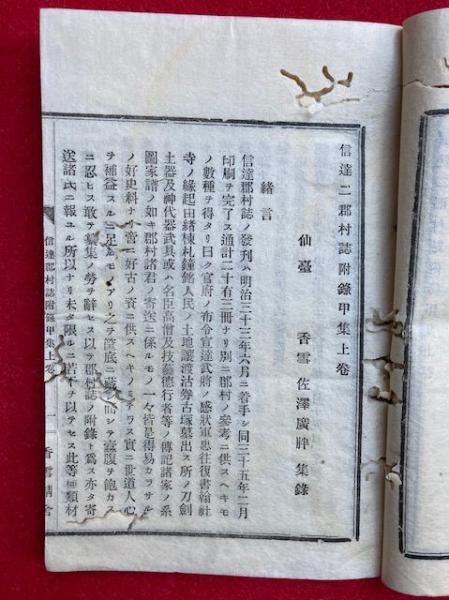 信達二郡村誌附錄甲集上卷
仙臺 香雪 佐澤廣胖 集錄
緒言
信達郡村誌ノ發刊ハ明治三十三年六月ニ着手シ同三十五年二月
印刷ヲ完了ス通計二十有三冊ナリ別ニ郡村ノ參考ニ供スヘキモ
ノ數種ヲ得タリ曰ク官府ノ布令宣達武將ノ感狀軍忠往復書翰社
寺ノ緣起由緒棟札鐘銘人民ノ土地讓渡沽券古塚墓出ス所ノ刀劍
土器及神代器武具或ハ名臣高僧及技藝德行者等ノ傳記諸家ノ系
圖家譜ノ如キ郡村諸君ノ寄送ニ係ルモノ一々皆是得易カラサル
ノ好史料ナリ啻ニ好古ノ資ニ供スヘキノミナラス實ニ世道人心
ヲ補益スルニ足ルモノアリ之ヲ篋底ニ藏シ蠹腹ヲ飽カス
ニ忍ヒス敢テ纂集ノ勞ヲ辭セス以テ郡村誌ノ附錄ト爲ス亦タ寄
送諸氏ニ報ユル所以ナリ未タ限ルニ若干ヲ以テセス此等種類材
信達二郡村誌附錄甲集上卷 一 香雪精舍